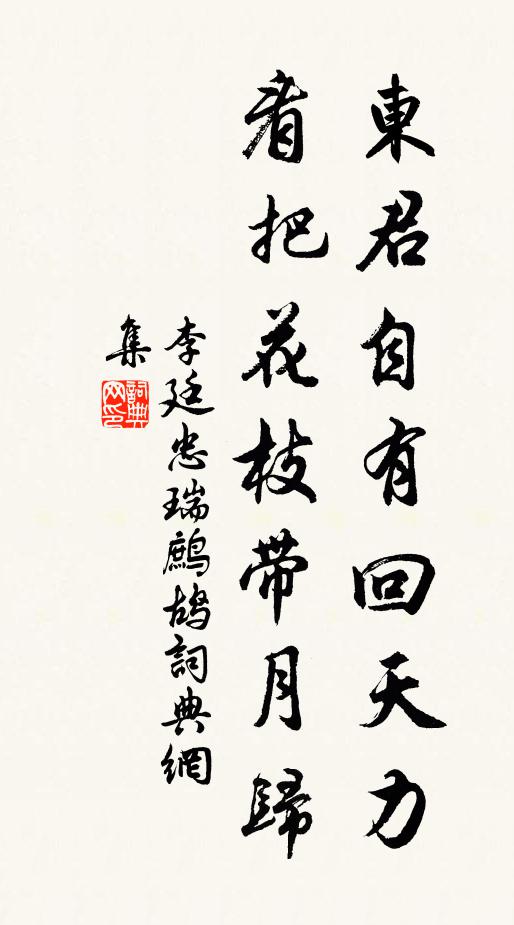 東君自有回天力
看把花枝带月歸
李廷忠瑞鷓鴣詞典網
集
詞典
网印